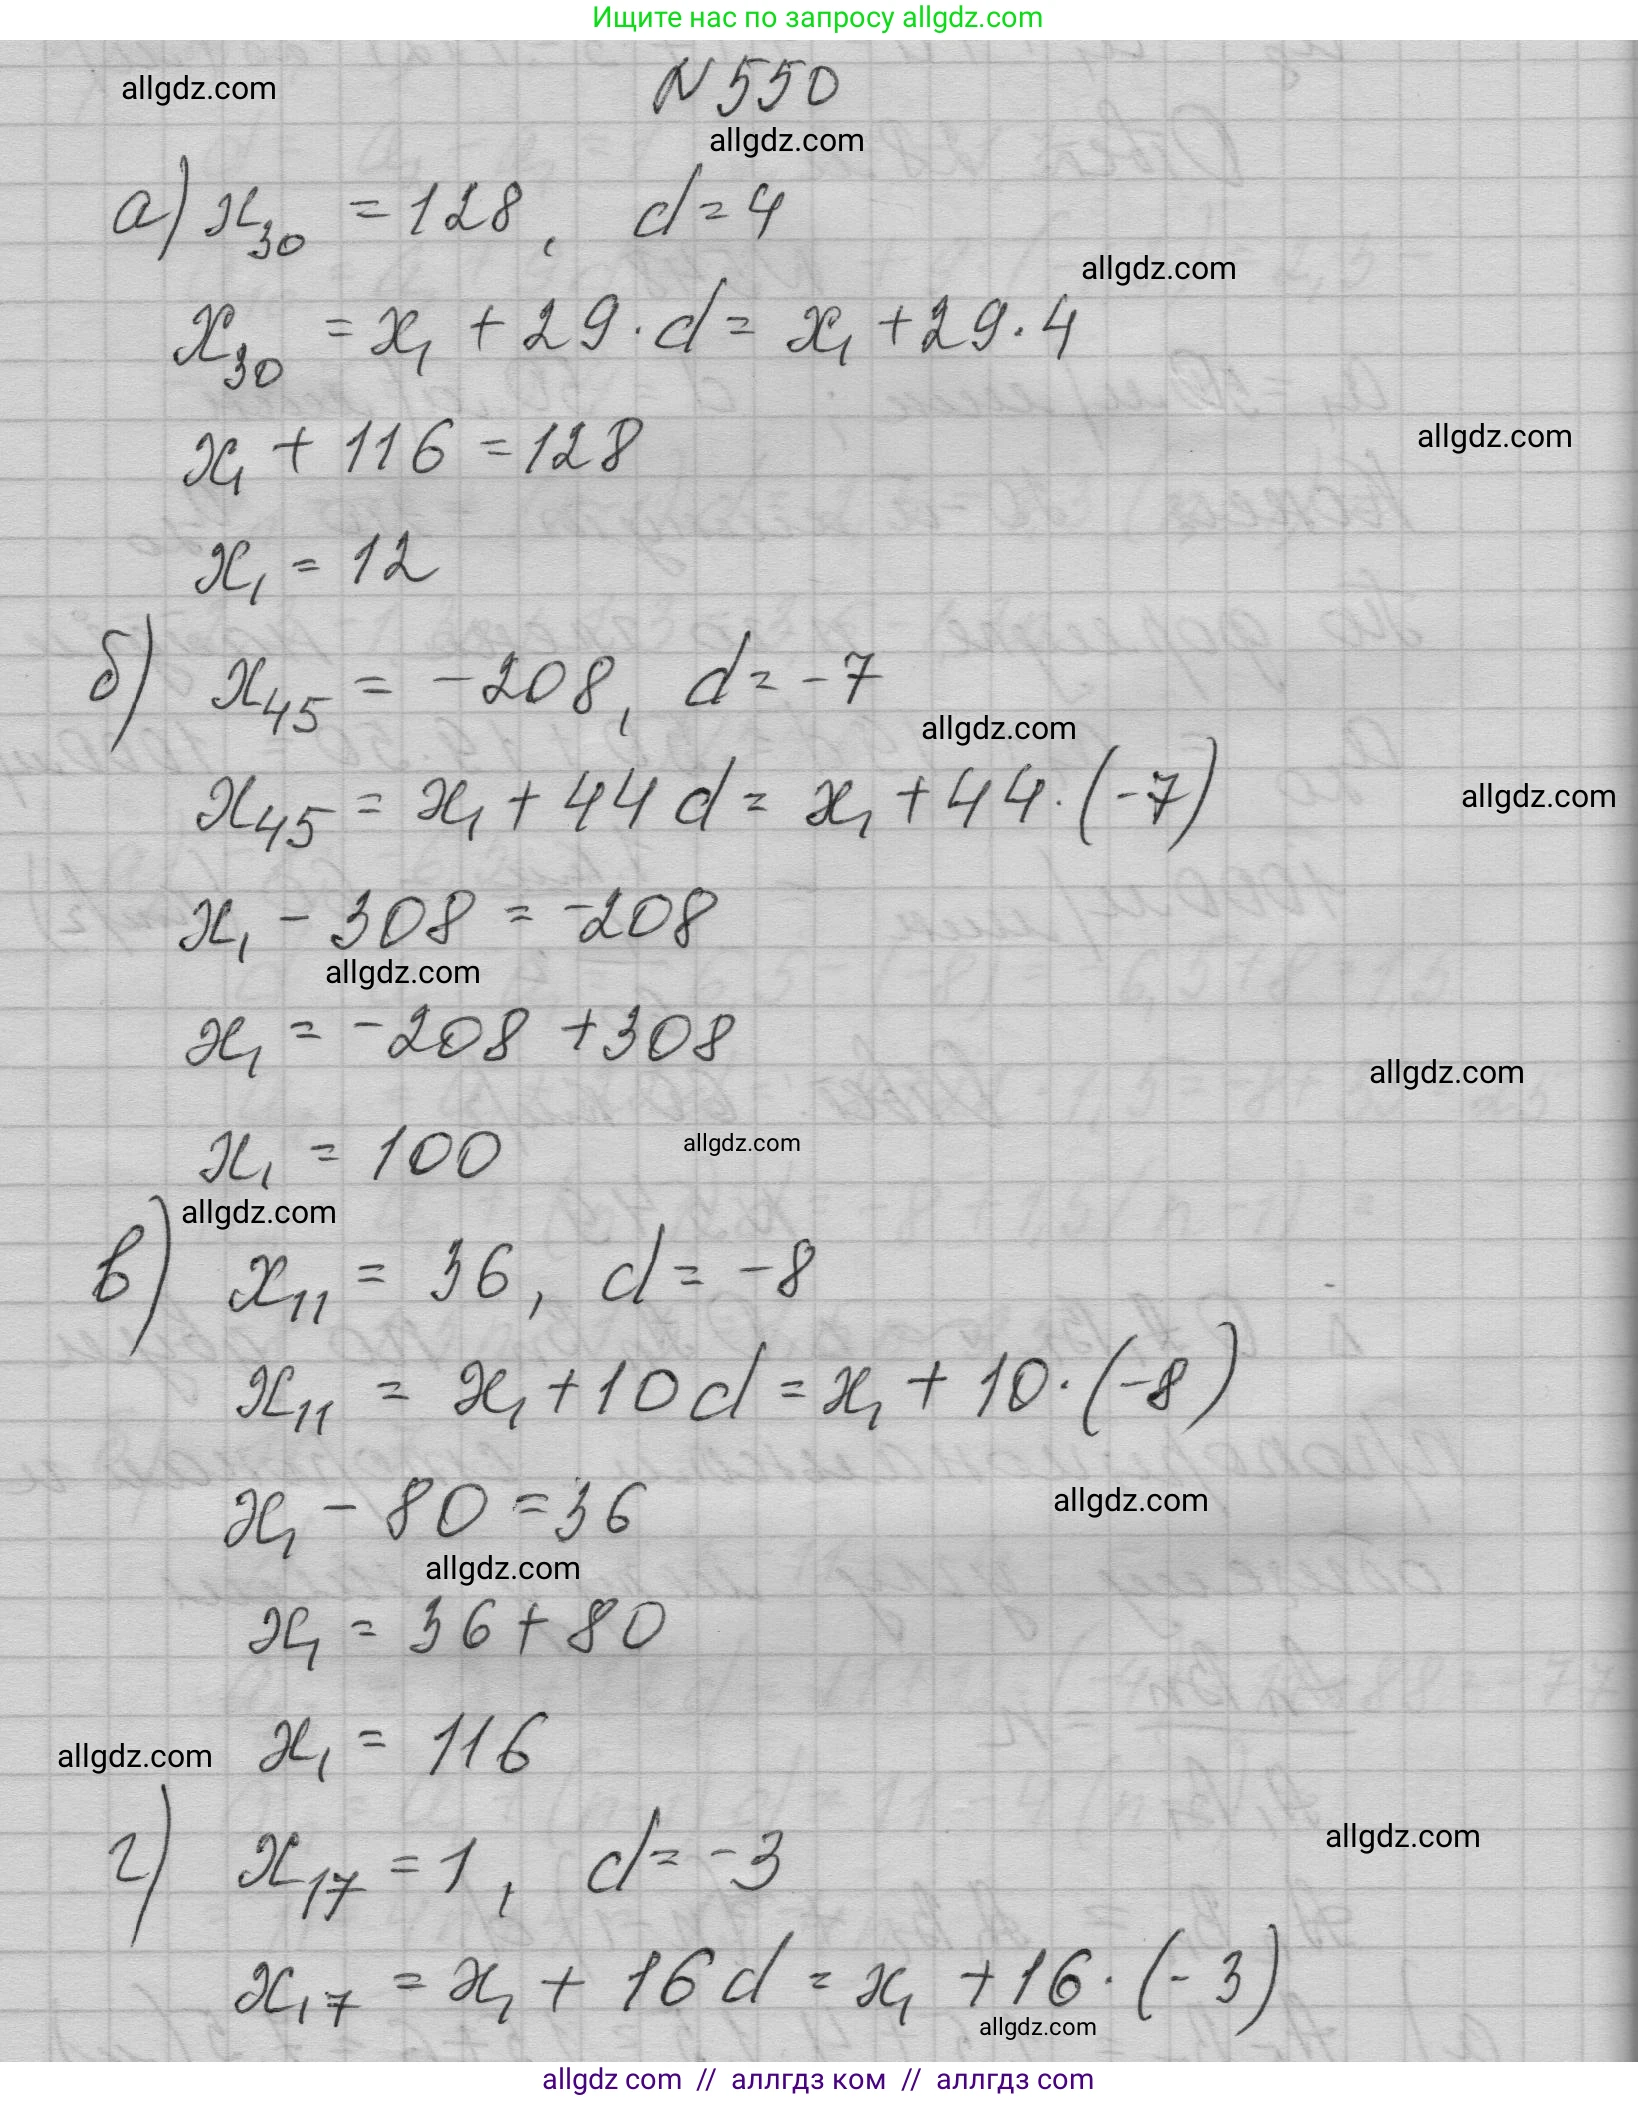 Ищите нас по запросу allgdz.com
allgdz.com
N 550
allgdz.com
а) x₃₀ = 128, d = 4
allgdz.com
x₃₀ = x₁ + 29 · d = x₁ + 29 · 4
allgdz.com
x₁ + 116 = 128
x₁ = 12
б) x₄₅ = -208, d = -7
allgdz.com
x₄₅ = x₁ + 44 d = x₁ + 44 · (-7)
allgdz.com
x₁ - 308 = -208
allgdz.com
x₁ = -208 + 308
allgdz.com
x₁ = 100
allgdz.com
allgdz.com
в) x₁₁ = 36, d = -8
x₁₁ = x₁ + 10 d = x₁ + 10 · (-8)
x₁ - 80 = 36
allgdz.com
allgdz.com
x₁ = 36 + 80
x₁ = 116
allgdz.com
г) x₁₇ = 1, d = -3
allgdz.com
x₁₇ = x₁ + 16 d = x₁ + 16 · (-3)
allgdz.com
allgdz com // аллгдз ком // аллгдз com